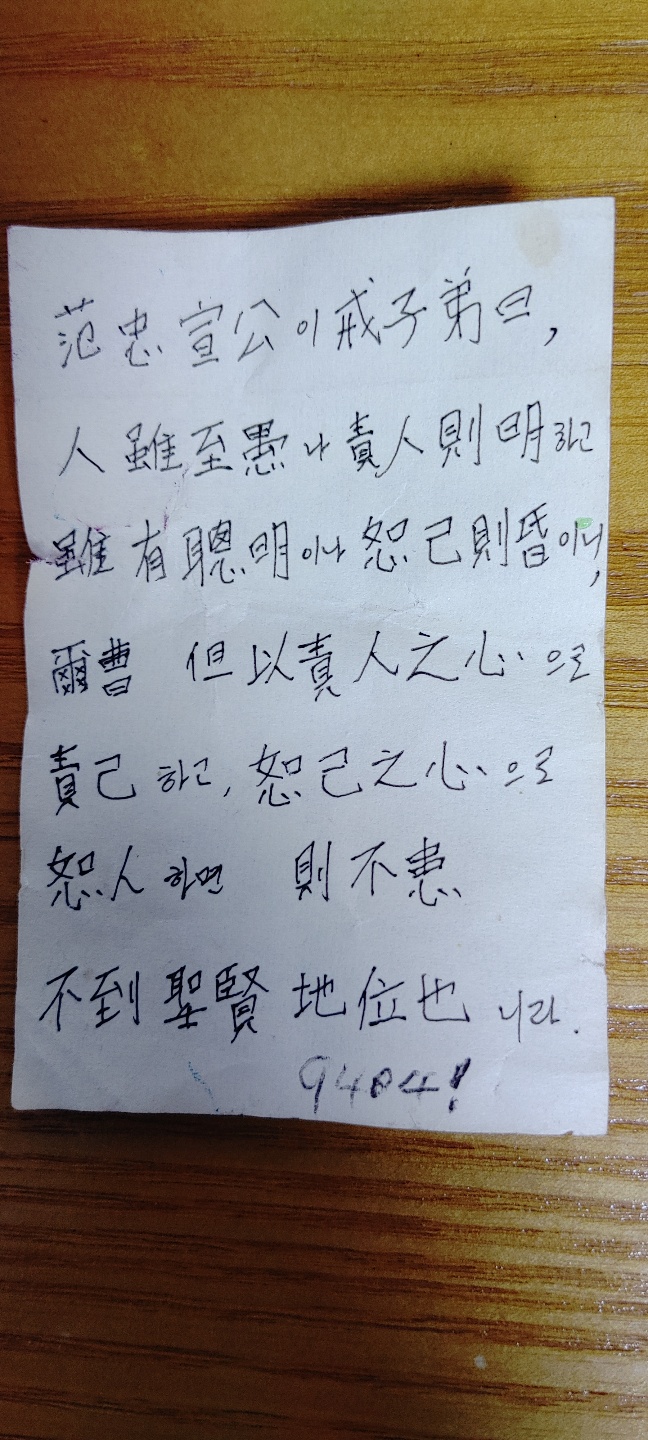 范忠宣公이戒子弟曰,
人雖至愚나責人則明하고
雖有聰明이나 恕己則昏이니,
爾曹 但以責人之心으로
責己하고, 恕己之心으로
恕人하면 則不患
不到聖賢地位也니라.
9404!